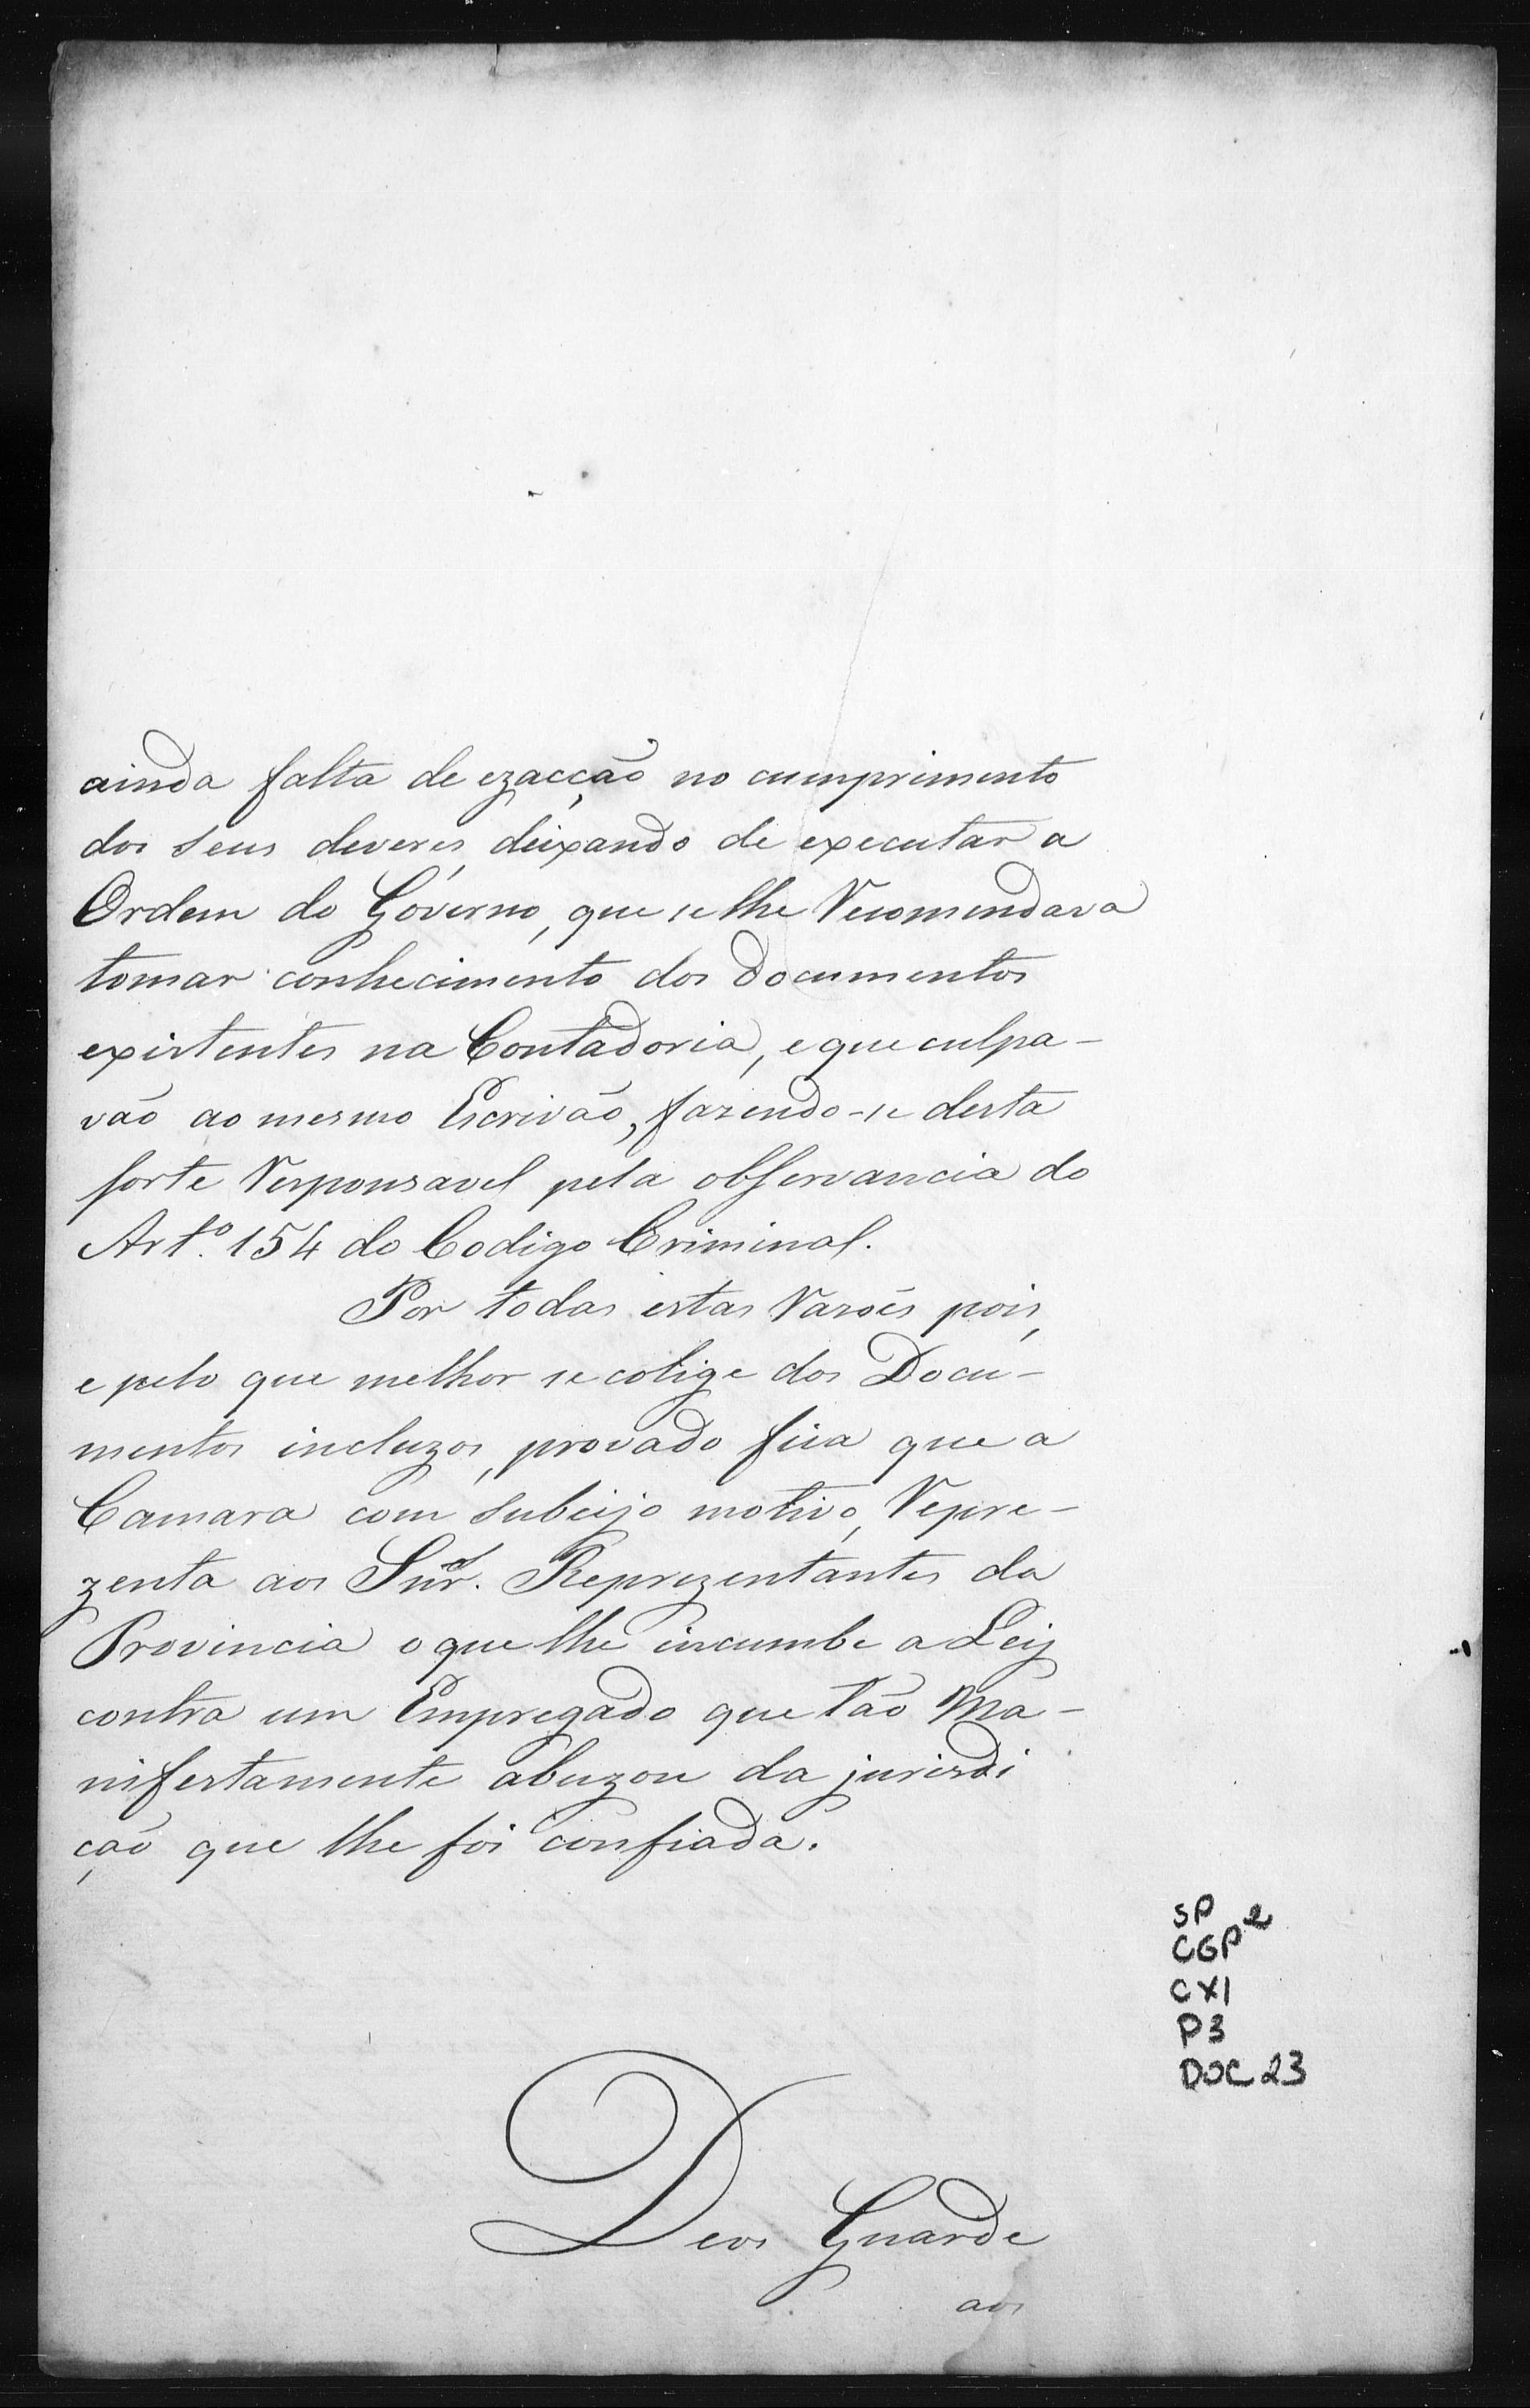 ainda falta de ezacção no cumprimento
dos seus deveres, deixando de executar a
Ordem do Governo, que se lhe Recomendava
tomar conhecimento dos Documentos
existentes na Contadoria, e que culpa-
vão ao mesmo Escrivão, fazendo-se desta
sorte Responsavel pela observancia do
Art.º 154 do Codigo Criminal.
Por todas estas Rasões pois,
e pelo que melhor se colige dos Docu-
mentos incluzos, provado fica que a
Camara com subejo motivo, Repre-
zenta aos Snr.s Reprezentantes da
Provincia o que lhe incumbe a Ley
contra um Empregado que tão Ma-
nifestamente abuzou da jurisdi
ção que lhe foi confiada.
SP
CGP 2
CX1
P3
DOC 23
Deos Guarde
aos